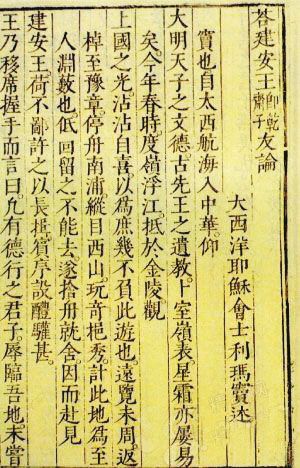 荅建安王仰乾齋子友論
大西洋耶穌會士利瑪竇述
竇也自太西航海入中華。仰
大明天子之文德。古先王之遺教。卜室嶺表。星霜亦屢易
矣。今年春時。度嶺浮江。抵於金陵。觀
上國之光。沾沾自喜。以爲庶幾不負此遊也。遠覽未周。返
棹至豫章。停舟南浦。縱目西山。玩竒挹秀。計此地爲至
人淵藪也。低回留之不能去。遂捨舟就舍。因而赴見
建安王。荷不鄙。許之以長揖賓序。設醴驩甚。
王乃移席握手而言曰。凢有德行之君子。辱臨吾地。未嘗